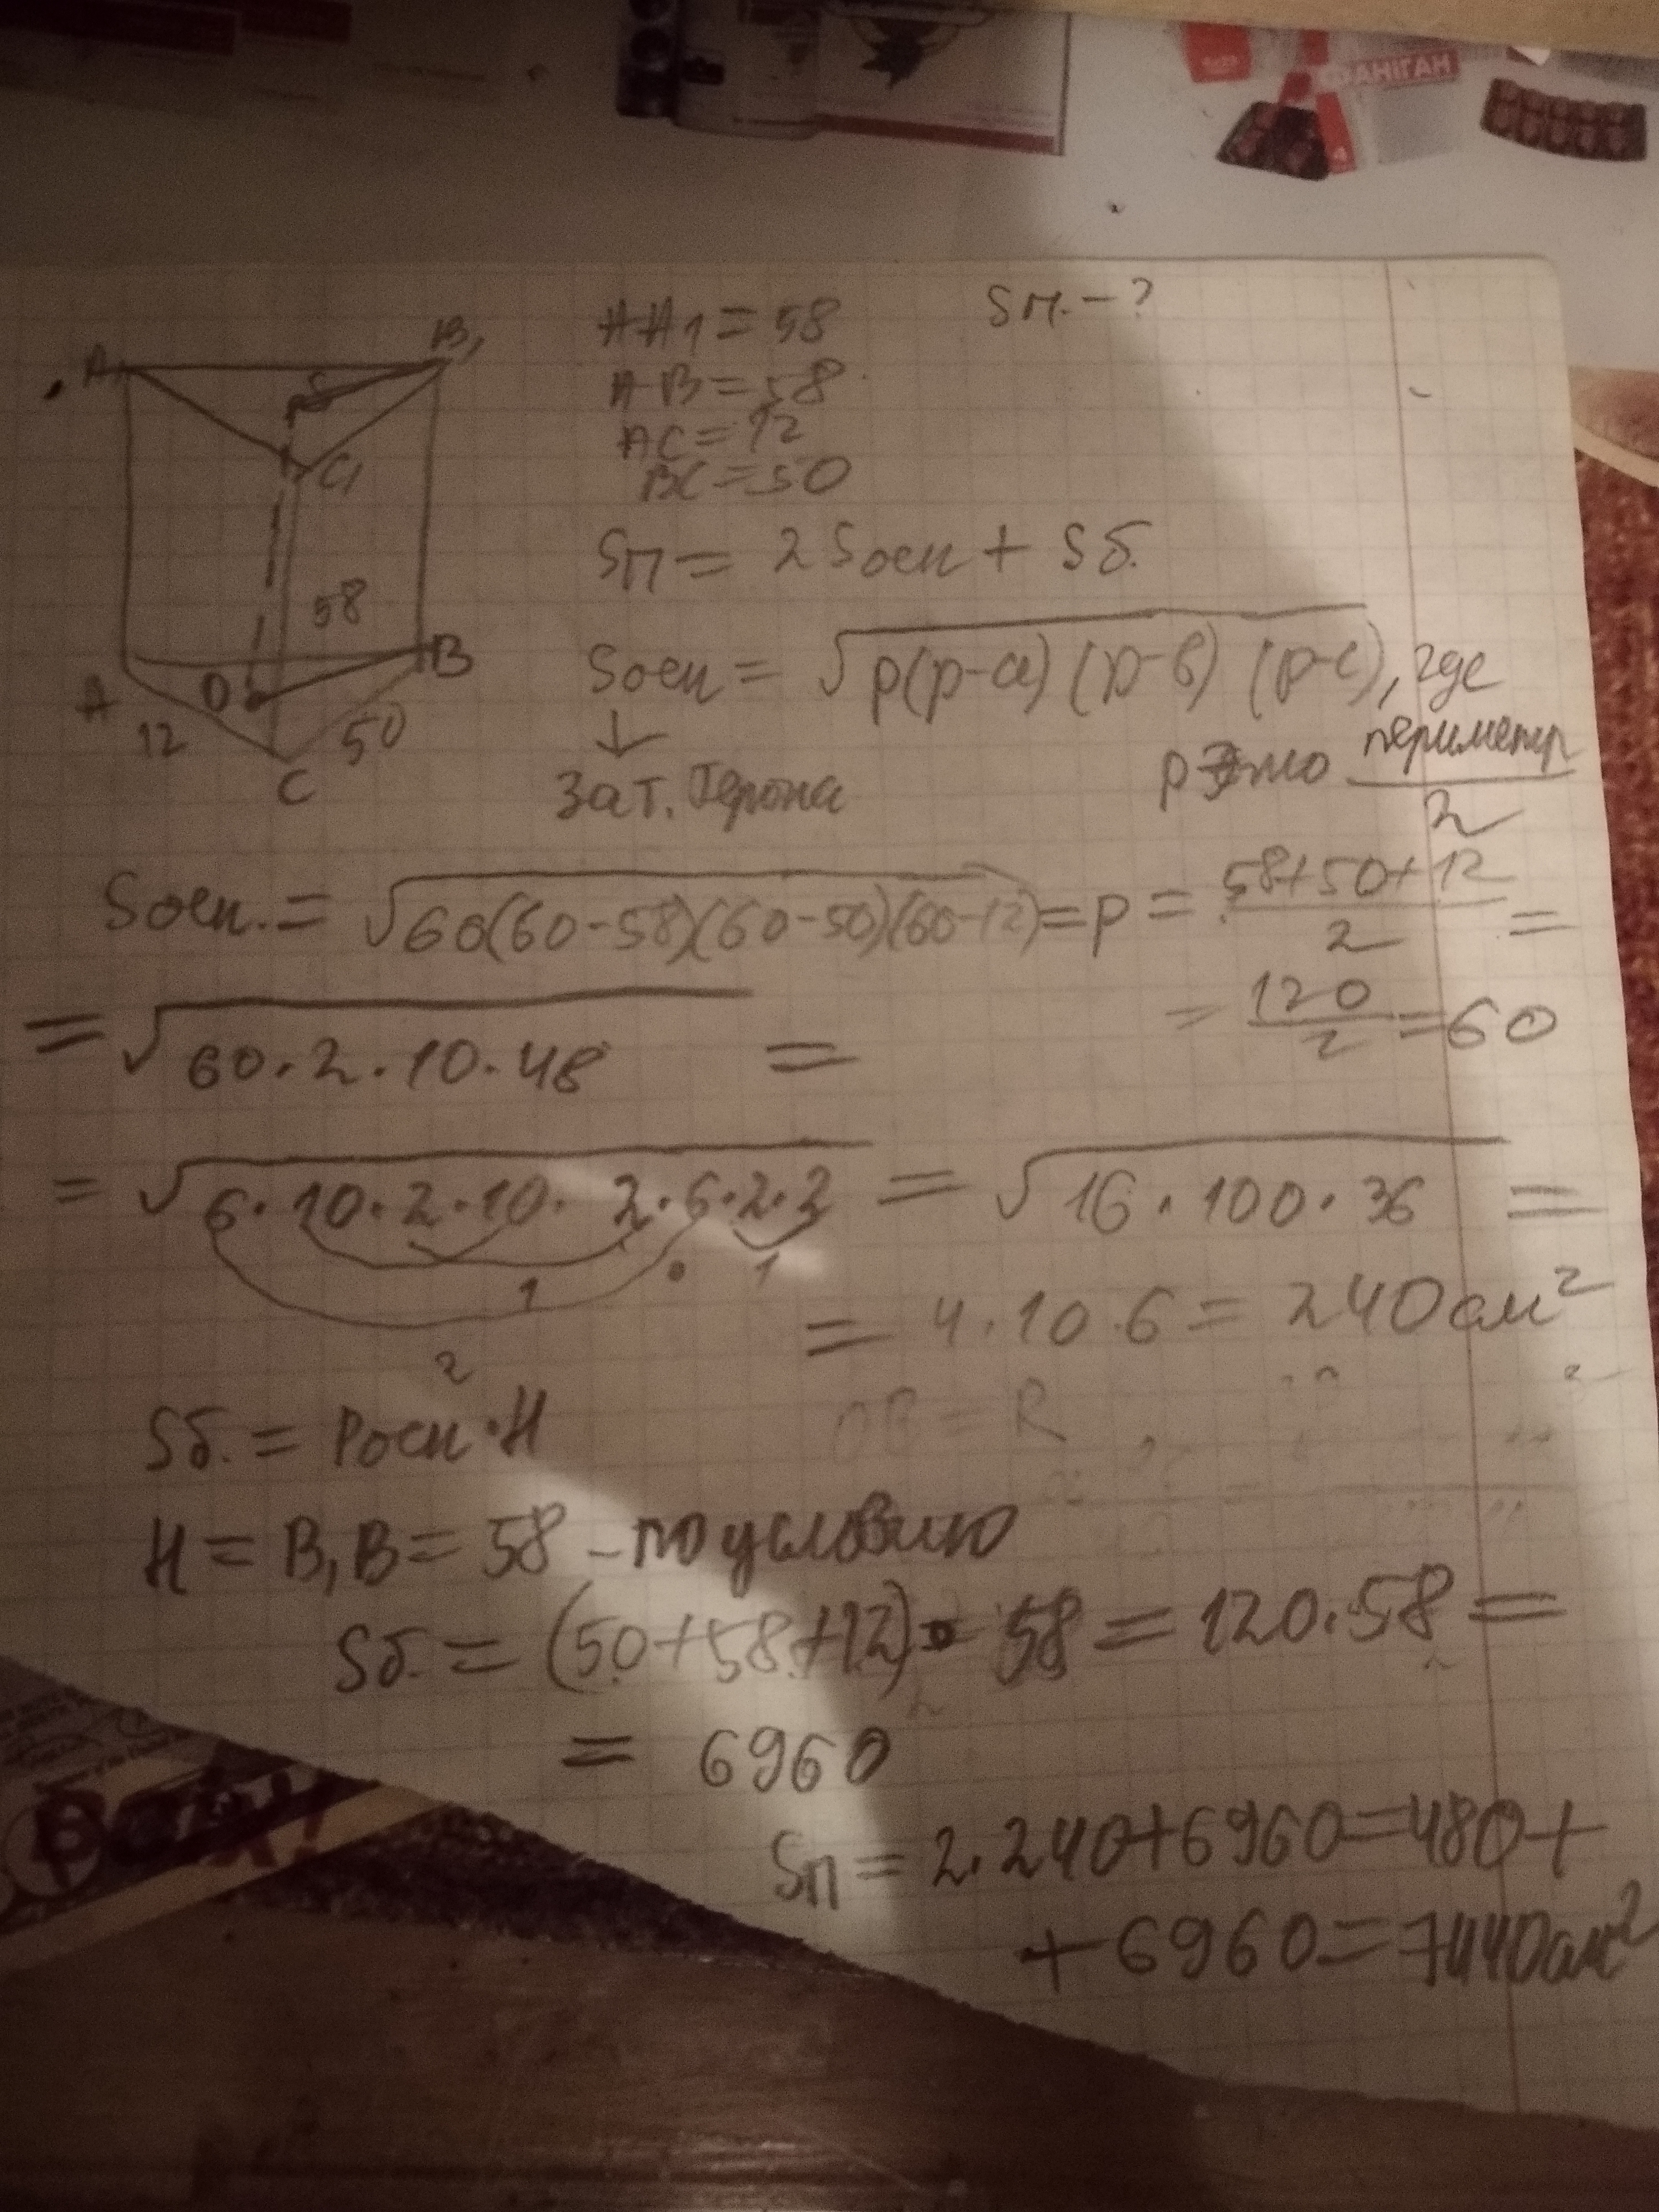 АНІГАН
Sп. - ?
AA1 = 58
AB = 58
AC = 12
BC = 50
A1
B1
S
C1
58
A
O
B
12
50
C
Sп = 2Sосн + Sб.
Sосн = √p(p-a)(p-b)(p-c), где
↓
За т. Герона
p это периметр/2
Sосн. = √60(60-58)(60-50)(60-12) =
p = (58+50+12)/2 =
= 120/2 = 60
= √60·2·10·48 =
= √6·10·2·10·2·6·2·2 = √16·100·36 =
1
1
2
= 4·10·6 = 240см²
OB = R
Sб. = Pосн·H
H = B1B = 58 - по условию
Sб. = (50+58+12)·58 = 120·58 =
= 6960
Sп = 2·240+6960=480+
+6960=7440см²